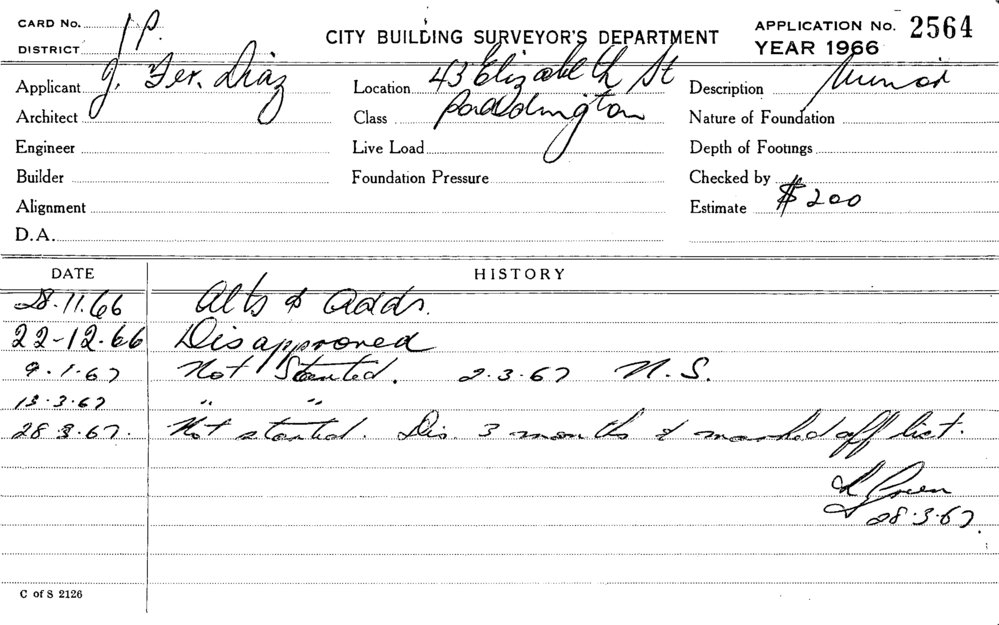 CARD No. 1P. CITY BUILDING SURVEYOR'S DEPARTMENT APPLICATION No. 2564
DISTRICT YEAR 1966
Applicant J. Fer. Diaz Location 43 Elizabeth St Description Minor
Architect Class Paddington Nature of Foundation
Engineer Live Load Depth of Footings
Builder Foundation Pressure Checked by
Alignment Estimate $200
D.A.
DATE HISTORY
28.11.66 Alts & Adds.
22-12-66 Disapproved
9.1.67 Not Started. 2.3.67 N.S.
13.3.67 " "
28.3.67. Not started. Dis. 3 months & marked off list.
28.3.67.
C of S 2126